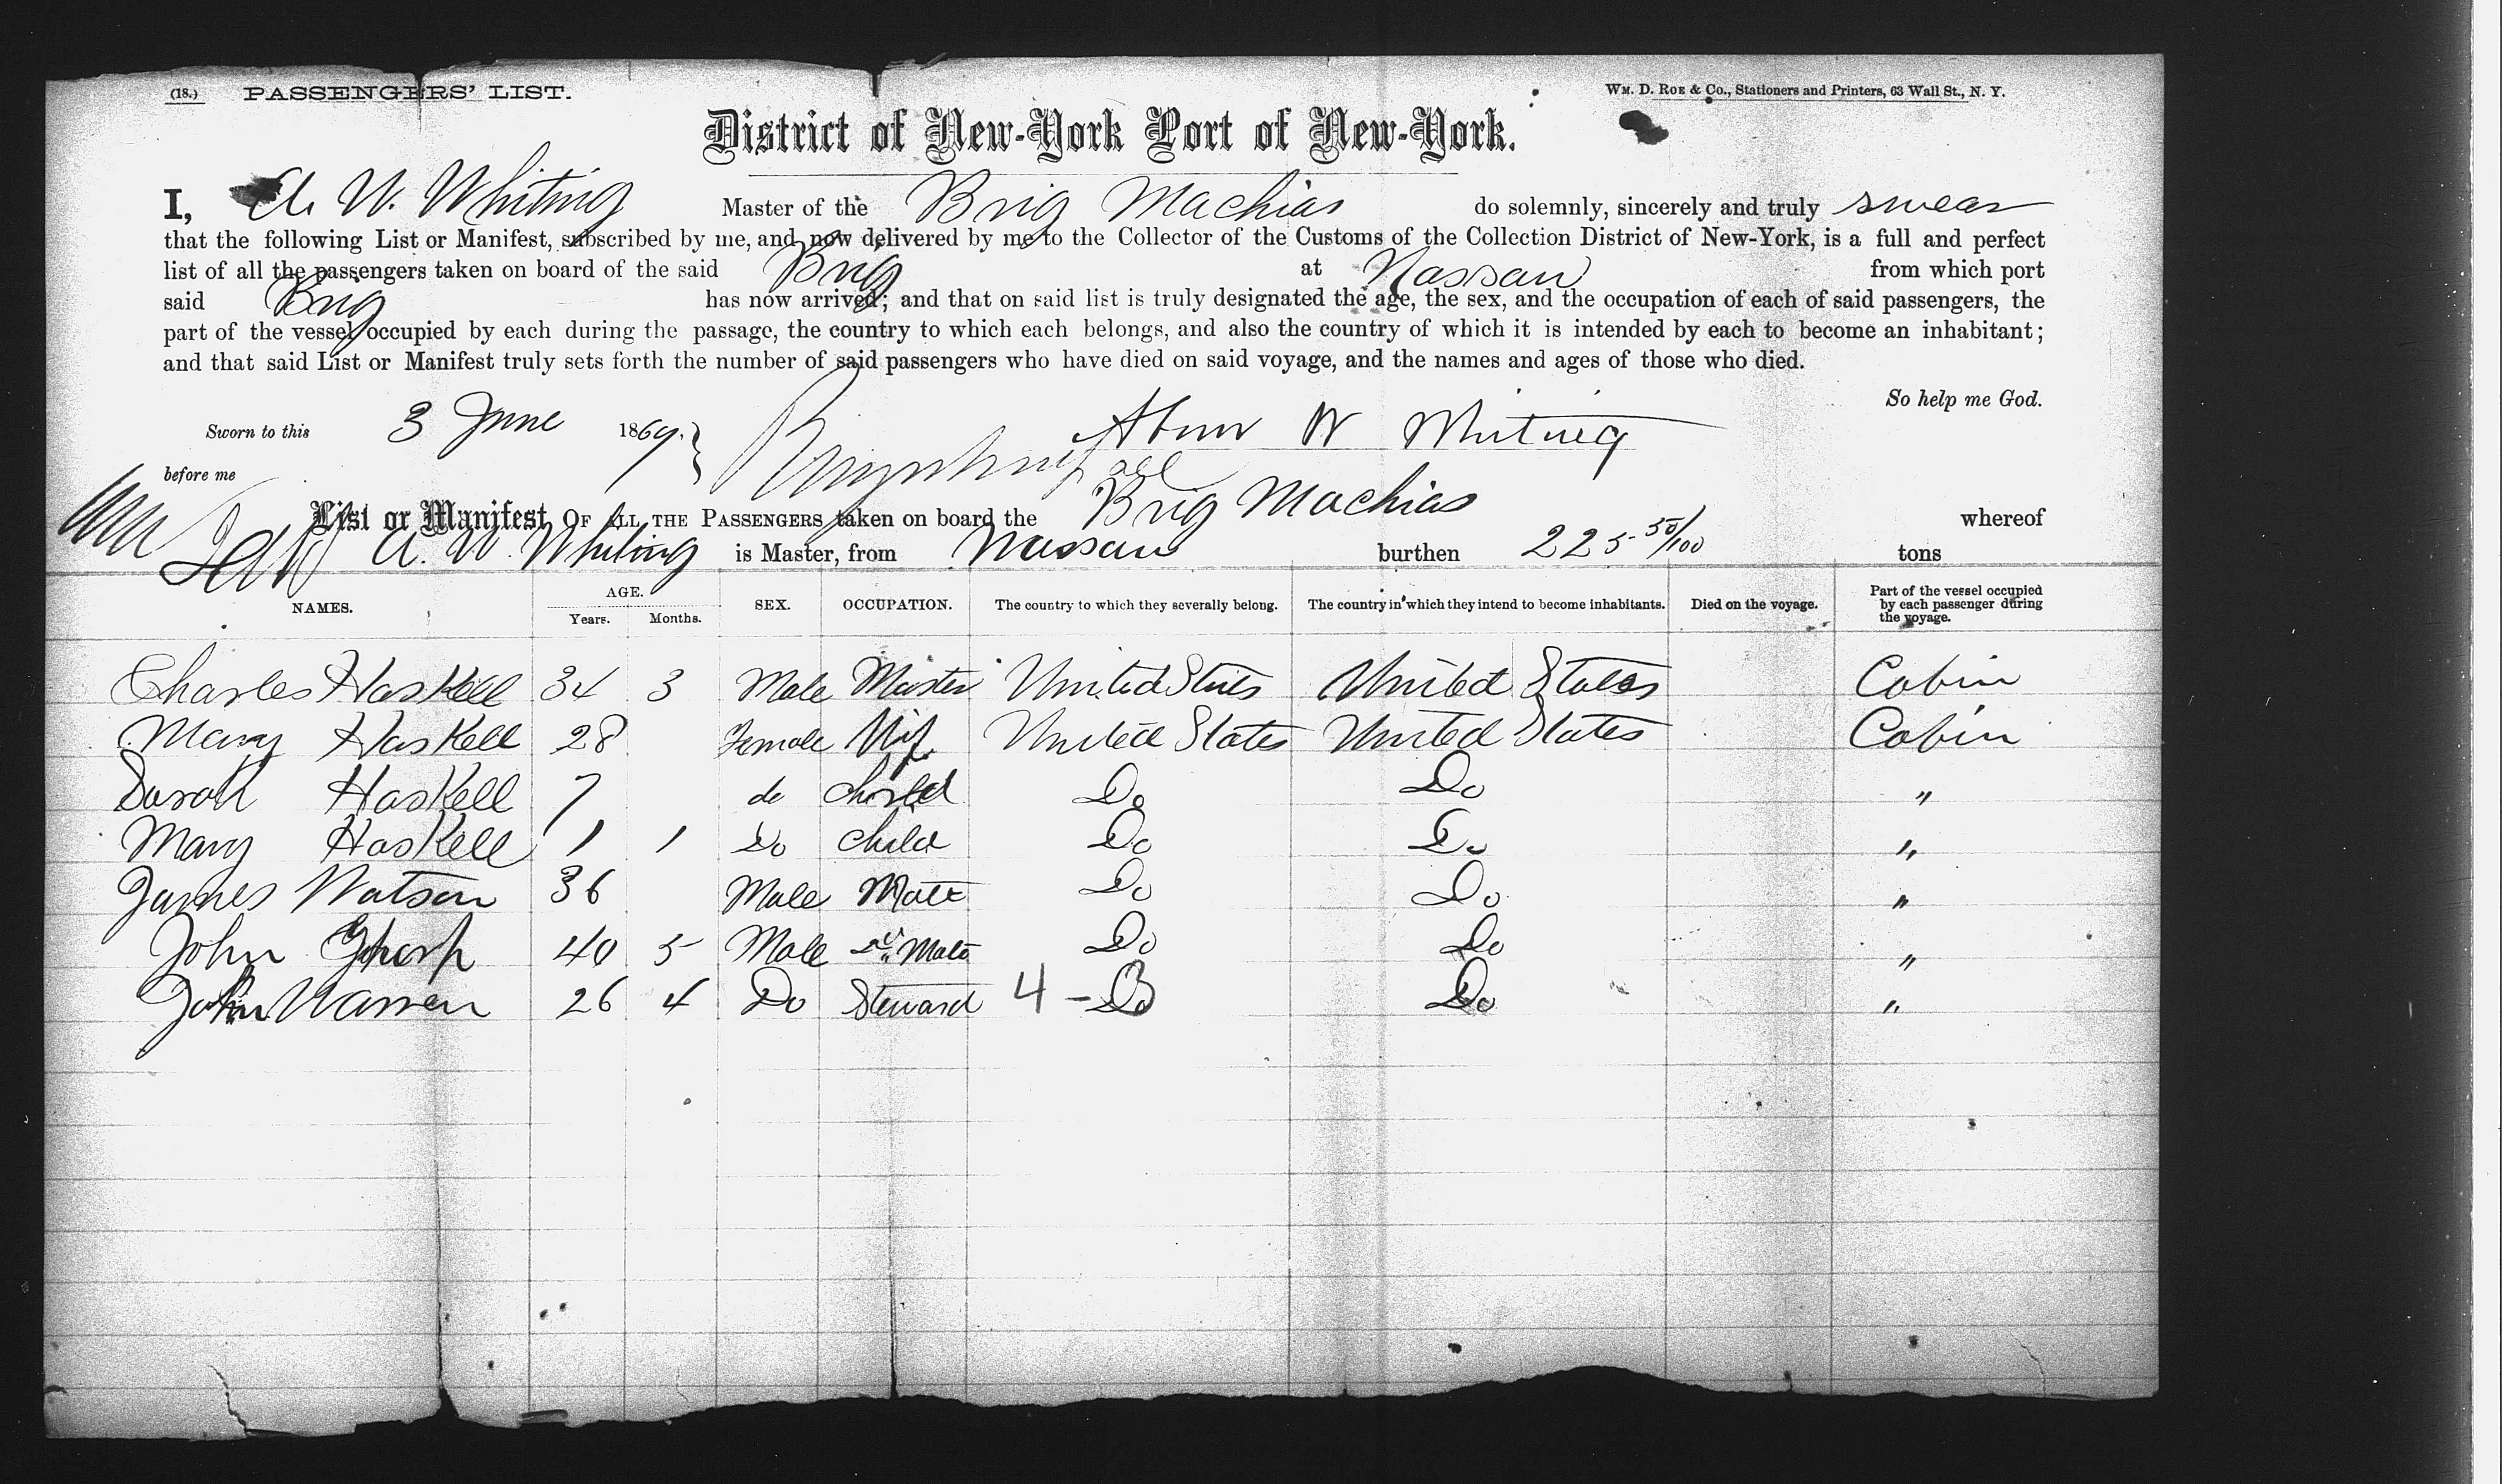 (18.) PASSENGERS' LIST. WM. D. ROE & Co., Stationers and Printers, 63 Wall St., N. Y.
District of New-York Port of New-York.
I, A. W. Whiting Master of the Brig Machias do solemnly, sincerely and truly swear
that the following List or Manifest, subscribed by me, and now delivered by me to the Collector of the Customs of the Collection District of New-York, is a full and perfect
list of all the passengers taken on board of the said Brig at Nassau from which port
said Brig has now arrived; and that on said list is truly designated the age, the sex, and the occupation of each of said passengers, the
part of the vessel occupied by each during the passage, the country to which each belongs, and also the country of which it is intended by each to become an inhabitant;
and that said List or Manifest truly sets forth the number of said passengers who have died on said voyage, and the names and ages of those who died.
So help me God.
Sworn to this 3 June 1869. W Whiting
before me
List or Manifest OF ALL THE PASSENGERS taken on board the Brig Machias whereof
A. W. Whiting is Master, from Nassau burthen 225 50/100 tons
NAMES. AGE. Years. Months. SEX. OCCUPATION. The country to which they severally belong. The country in which they intend to become inhabitants. Died on the voyage. Part of the vessel occupied by each passenger during the voyage.
Charles Haskell 34 3 Male Master United States United States Cabin
Mary Haskell 28 Female Wife United States United States Cabin
Sarah Haskell 7 do child Do Do "
Mary Haskell 1 1 Do child Do Do "
James Watson 36 Male Mate Do Do "
John 40 5 Male 2d Mate Do Do "
John Warren 26 4 Do Steward 4 - 3 Do Do "